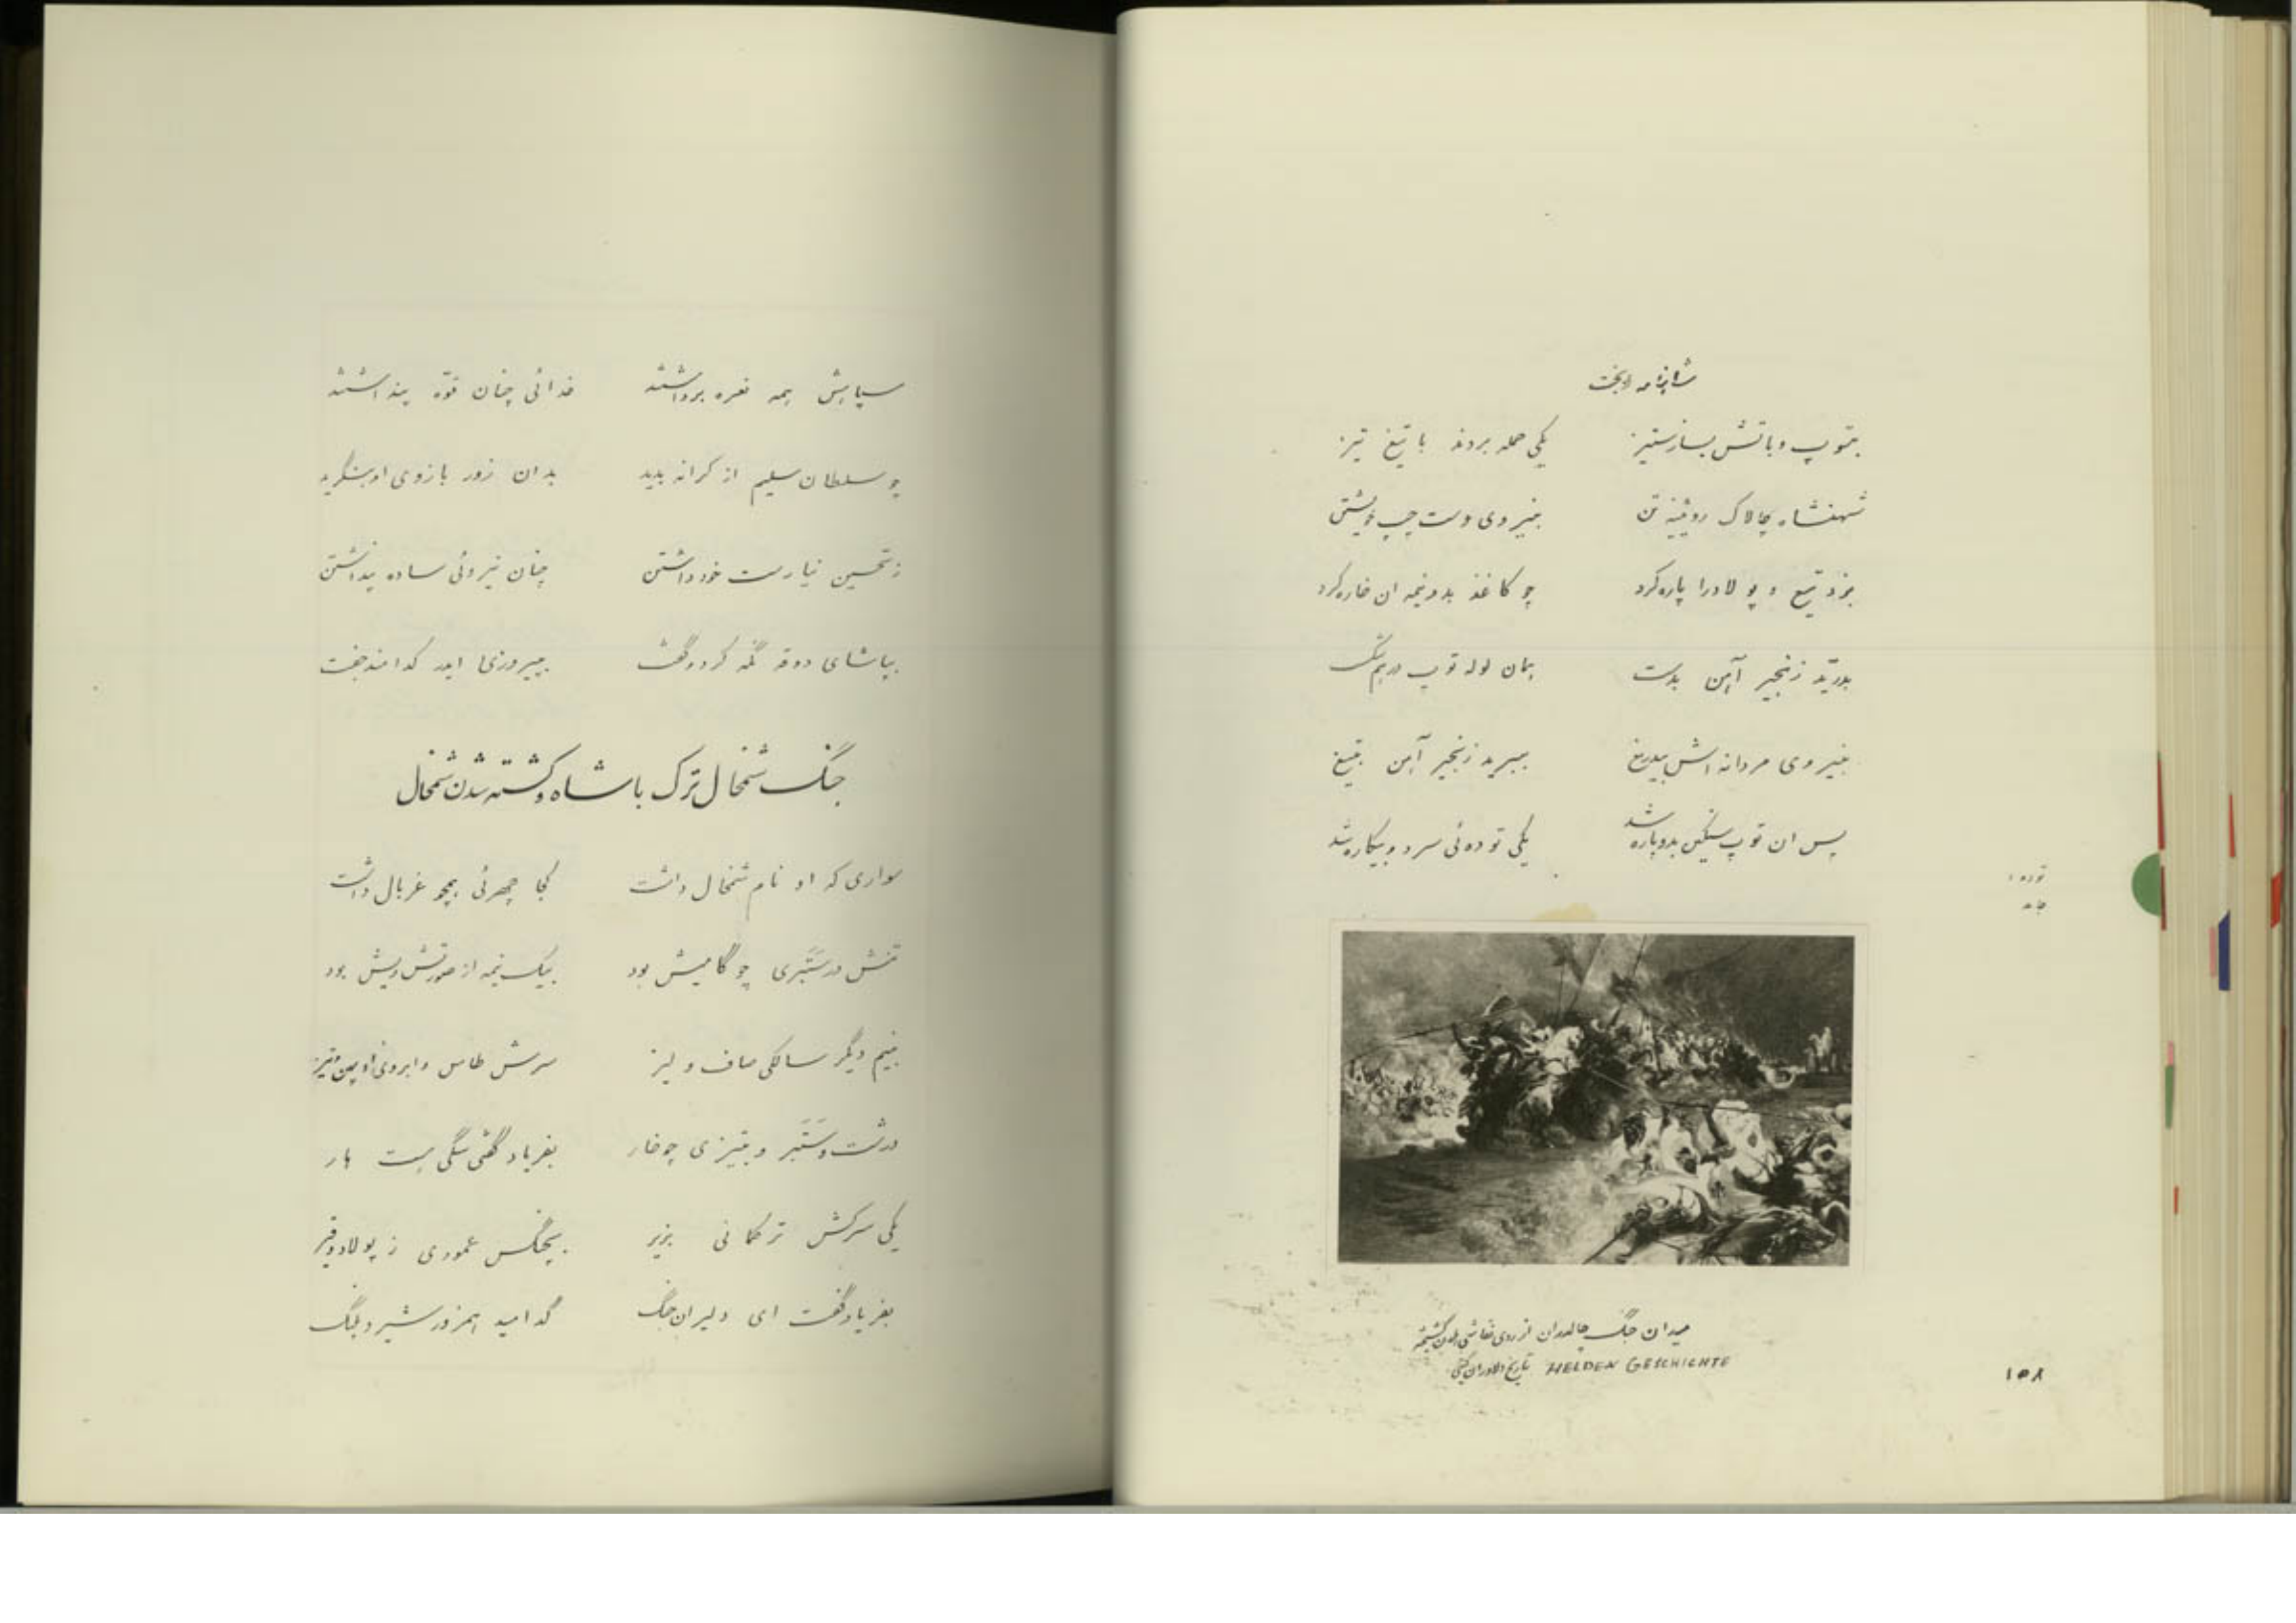 شاهنامه نوبخت
بتوپ و باتش بساز ستیز یکی حمله بردند با تیغ تیز
شهنشاه چالاک روئینه تن بنیروی دست چپ خویشتن
بزد تیغ و پولاد را پاره کرد چو کاغذ بدو نیمه ان خاره کرد
بدرّید زنجیر آهن بدست همان لوله توپ درهم شکست
بنیروی مردانه اش بیدریغ ببرید زنجیر آهن بتیغ
پس ان توپ سنگین بدو پاره شد یکی توده ئی سرد و بیکاره شد
توده :
جامد
میدان جنگ چالدران از روی نقاشی
HELDEN GESCHICHTE تاریخ دلاوران گیتی
۱۵۸
سپاهش همه نعره برداشتند خدائی چنان قوّه پنداشتند
چو سلطان سلیم از کرانه بدید بدان زور بازوی او بنگرید
ز تحسین نیارست خود داشتن چنان نیروئی ساده پنداشتن
بپاشای دوقه نگه کرد و گفت بپیروزی اندر کدامند جفت
جنگ شمخال ترک با شاه و کشته شدن شمخال
سواری که او نام شمخال داشت کجا چهرئی همچو غربال داشت
تنش در ستَبری چو گامیش بود بیک نیمه از صورتش ریش بود
بنیم دیگر سالکی صاف و لیز سرش طاس و ابروی او پهن و تیز
درشت و ستَبر و بتیزی چو خار بفریاد گفتی سگی هست هار
یکی سرکش ترکمانی بزیر بچنگش عمودی ز پولاد و قیر
بفریاد گفت ای دلیران جنگ کدامید همزور شیر و پلنگ